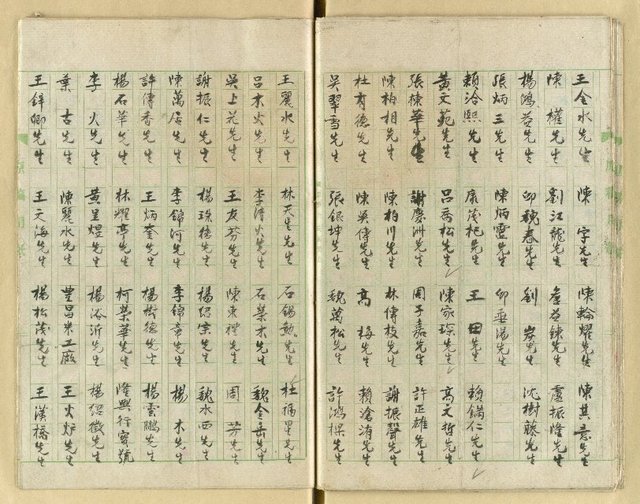 王金水先生 陳 字先生 陳輪耀先生 陳其意先生
陳 權先生 劉江龍先生 盧益鍊先生 盧振隆先生
楊鴻益先生 邱魏春先生 劉 炭先生 沈樹藤先生
張炳三先生 陳炳靈先生 邱垂湯先生
賴洽熙先生 康茂杞先生 王 田先生 賴鎮仁先生
黃文苑先生 呂喬松先生 陳家琛先生 高文哲先生
張棟華先生 謝慶洲先生 周子嘉先生 許正雄先生
陳柏相先生 陳柏川先生 林傳枝先生 謝振聲先生
杜有德先生 陳英傳先生 高 梅先生 賴滄洧先生
吳翠雪先生 張銀坤先生 魏萬松先生 許鴻樑先生
王麗水先生 林天生先生 石錫勲先生 杜福星先生
呂木火先生 李清火先生 石榮木先生 魏金岳先生
吳上花先生 王友芬先生 陳東裡先生 周 芳先生
謝振仁先生 楊珠德先生 楊紹宗先生 魏水西先生
陳萬居先生 李錦河先生 李錦章先生 楊 木先生
許傳香先生 王炳奎先生 楊樹德先生 楊雲鵬先生
楊石華先生 林耀亭先生 柯榮華先生 隆興行寶號
李 火先生 黃呈焜先生 楊浴沂先生 楊紹徽先生
葉 古先生 陳麗水先生 豊昌米工廠 王火炉先生
王鋅卿先生 王天海先生 楊松茂先生 王漢橋先生